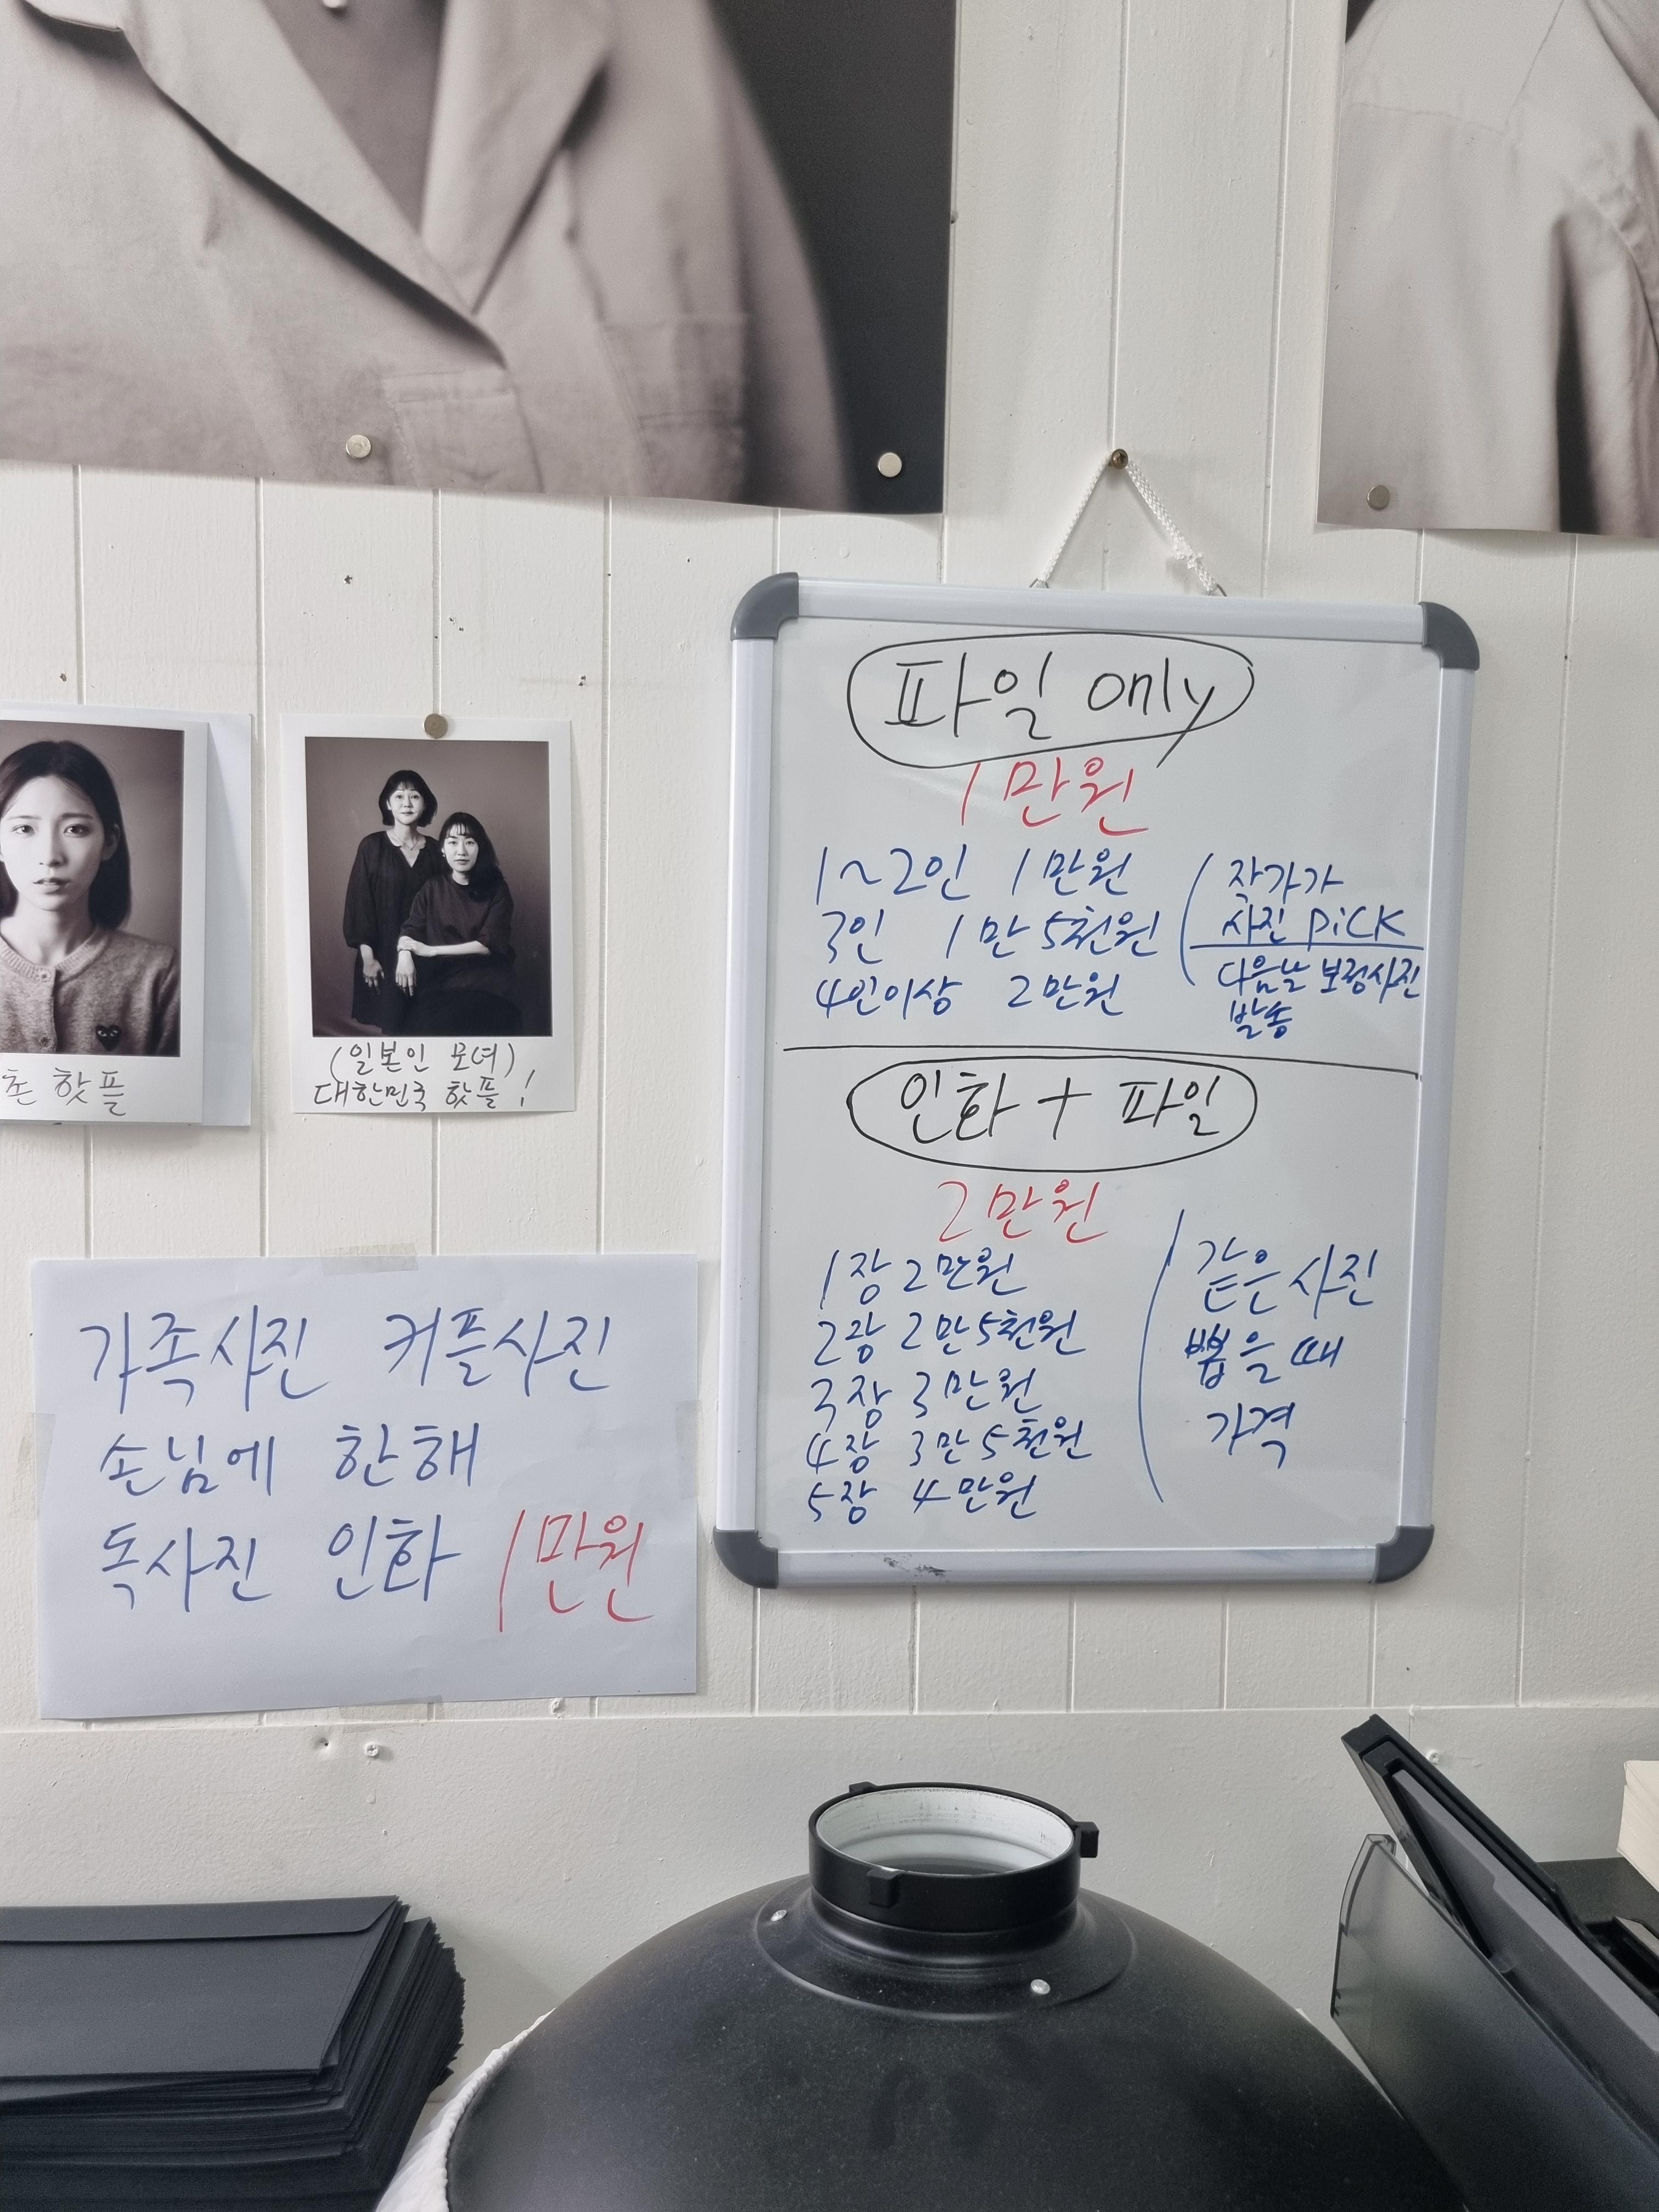 촌 핫플
(일본인 모녀)
대한민국 핫플!
가족사진 커플사진
손님에 한해
독사진 인화 1만원
파일 only
1만원
1~2인 1만원
3인 1만5천원
4인이상 2만원
작가가
사진 PiCK
다음날 보정사진
발송
인화 + 파일
2만원
1장 2만원
2장 2만5천원
3장 3만원
4장 3만5천원
5장 4만원
같은 사진
뽑을 때
가격